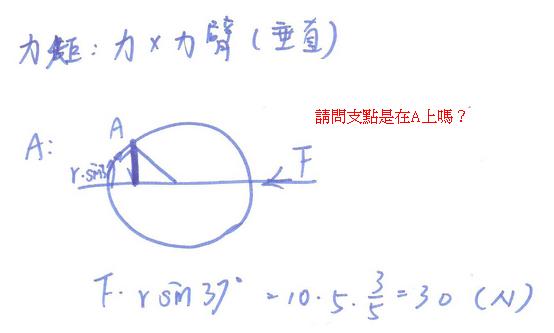 力矩：力×力臂（垂直）
請問支點是在A上嗎？
A：
A
r·sin37
F
F·r sin37° = 10·5·3/5 = 30 (N)